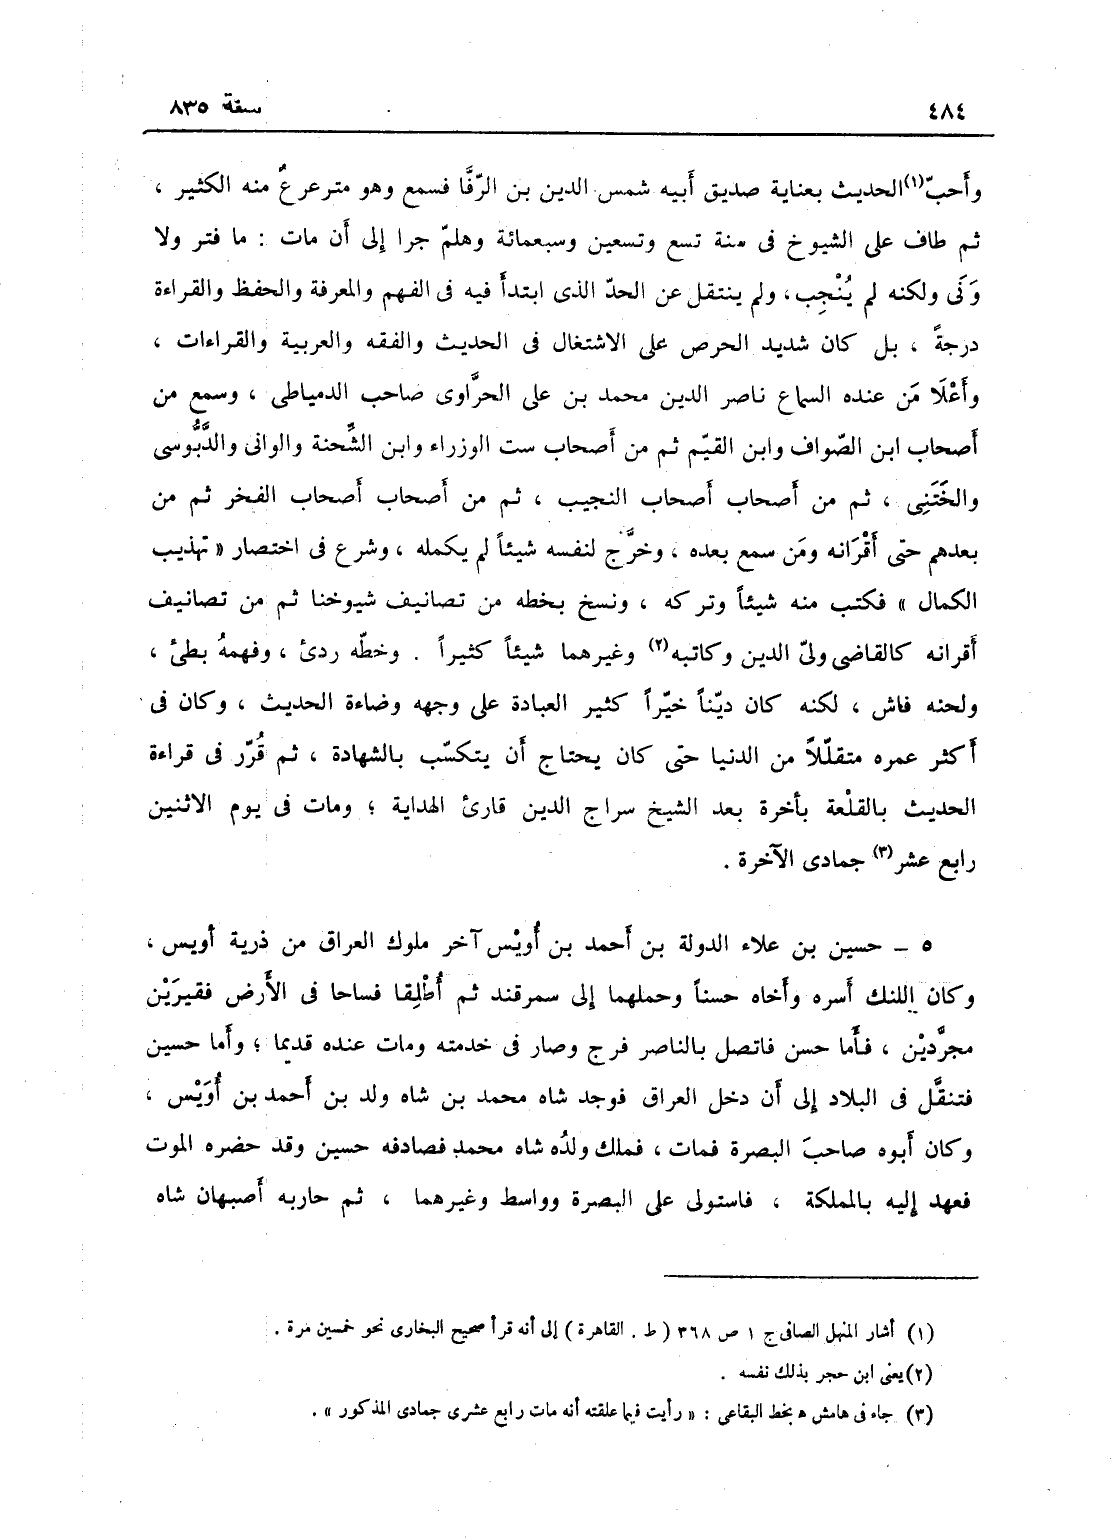 ٤٨٤
سنة ٨٣٥
وأَحبّ(١) الحديث بعناية صديق أَبيه شمس الدين بن الرّفَّا فسمع وهو مترعرعٌ منه الكثير ،
ثم طاف على الشيوخ فى سنة تسع وتسعين وسبعمائة وهلمّ جرا إلى أَن مات : ما فتر ولا
وَنَى ولكنه لم يُنْجِب ، ولم ينتقل عن الحدّ الذى ابتدأَ فيه فى الفهم والمعرفة والحفظ والقراءة
درجةً ، بل كان شديد الحرص على الاشتغال فى الحديث والفقه والعربية والقراءات ،
وأَعْلَا مَن عنده السماع ناصر الدين محمد بن على الحرَّاوى صاحب الدمياطى ، وسمع من
أَصحاب ابن الصّواف وابن القيّم ثم من أَصحاب ست الوزراء وابن الشِّحنة والوانى والدَّبُّوسى
والخَتَنِى ، ثم من أَصحاب أَصحاب النجيب ، ثم من أَصحاب أَصحاب الفخر ثم من
بعدهم حتى أَقْرَانه ومَن سمع بعده ، وخرَّج لنفسه شيئاً لم يكمله ، وشرع فى اختصار « تهذيب
الكمال » فكتب منه شيئاً وتركه ، ونسخ بخطه من تصانيف شيوخنا ثم من تصانيف
أَقرانه كالقاضى ولىّ الدين وكاتبه(٢) وغيرهما شيئاً كثيراً . وخطّه ردئ ، وفهمهُ بطئ ،
ولحنه فاش ، لكنه كان ديّناً خيّراً كثير العبادة على وجهه وضاءة الحديث ، وكان فى
أَكثر عمره متقلّلاً من الدنيا حتى كان يحتاج أَن يتكسّب بالشهادة ، ثم قُرّر فى قراءة
الحديث بالقلْعة بأخرة بعد الشيخ سراج الدين قارئ الهداية ؛ ومات فى يوم الاثنين
رابع عشر(٣) جمادى الآخرة .
٥ ــ حسين بن علاء الدولة بن أَحمد بن أُويْس آخر ملوك العراق من ذرية أويس ،
وكان اللنك أَسره وأَخاه حسناً وحملهما إلى سمرقند ثم أُطْلِقا فساحا فى الأَرض فقيرَيْن
مجرَّديْن ، فأَما حسن فاتصل بالناصر فرج وصار فى خدمته ومات عنده قديما ؛ وأَما حسين
فتنقَّل فى البلاد إلى أَن دخل العراق فوجد شاه محمد بن شاه ولد بن أَحمد بن أُوَيْس ،
وكان أَبوه صاحبَ البصرة فمات ، فملك ولدُه شاه محمد فصادفه حسين وقد حضره الموت
فعهد إليه بالمملكة ، فاستولى على البصرة وواسط وغيرهما ، ثم حاربه أَصبهان شاه
(١) أشار المنهل الصافى ج ١ ص ٣٦٨ ( ط . القاهرة ) إلى أنه قرأ صحيح البخارى نحو خمسين مرة .
(٢) يعنى ابن حجر بذلك نفسه .
(٣) جاء فى هامش ه بخط البقاعى : « رأيت فيما علقته أنه مات رابع عشرى جمادى المذكور » .